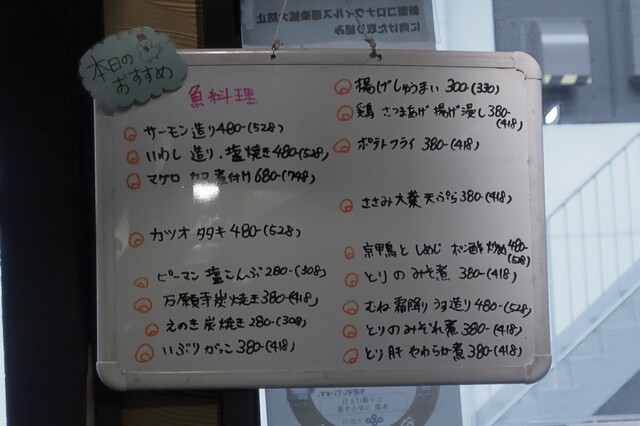 新型コロナウィルス感染拡大防止
に向けた取り組み
本日の
おすすめ
魚料理
サーモン造り480-(528)
いわし 造り.塩焼き480-(528)
マグロ カマ煮付け680-(748)
カツオ タタキ 480-(528)
ピーマン 塩こんぶ280-(308)
万願寺炭焼き380-(418)
えのき炭焼き280-(308)
いぶりがっこ380-(418)
揚げしゅうまい 300-(330)
鶏 さつまあげ 揚げ浸し380-(418)
ポテトフライ 380-(418)
ささみ大葉天ぷら380-(418)
京鴨としめじ ポン酢炒め480-(528)
とりのみそ煮 380-(418)
むね霜降り うす造り480-(528)
とりのみぞれ煮 380-(418)
とり肝 やわらか煮 380-(418)